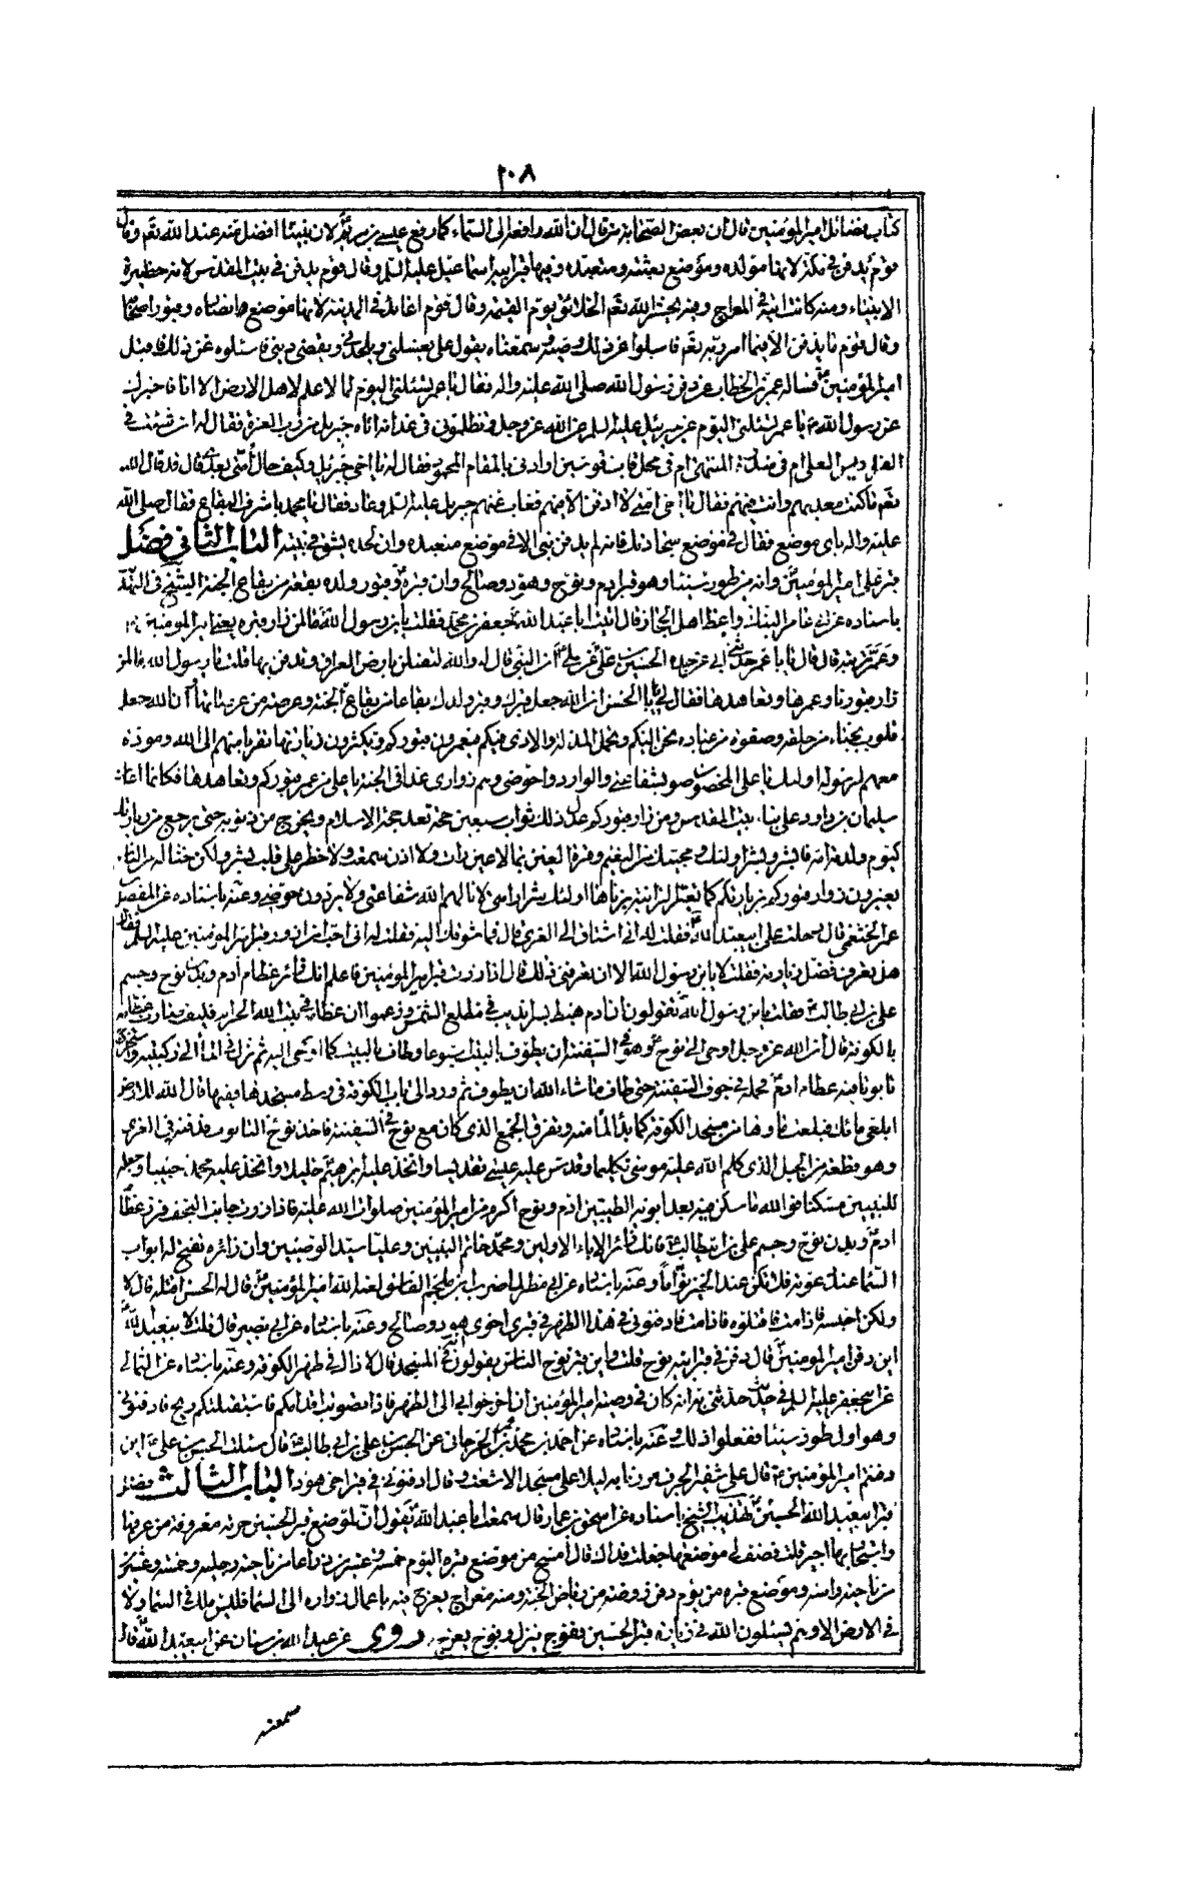 ٢٠٨
كتاب فضائل امير المؤمنين قال ان بعض الصحابة من قال ان الله رافعه الى السماء كما رفع عيسى بن مريم لان نبينا افضل منه عند الله تعم وقال
قوم يدفن في مكة لانها مولده وموضع بعثته ومتعبده وفيها قبر ابيه اسماعيل عليه السلم وقال قوم يدفن في بيت المقدس لانه حظيرة
الانبياء ومنه كانت في المعراج ومنه يحشر الله تعم الخلائق يوم القيمة وقال قوم انما يدفن في المدينة لانها موضع وقبور
وقال قوم ما يدفن الا بما امر ربه تعم فاسئلوا عن ذلك وصيه سمعناه يقول على يغسلنى ويلحدنى ويقضى دينى فاسئلوه عن ذلك فاقبل
امير المؤمنين فساله عمر بن الخطاب عن دفن رسول الله صلى الله عليه واله فقال يا عمر تسئلنى اليوم لا اهل الارض الا انا فاخبرك
عن رسول الله يا عمر تسئلنى اليوم عن جبرئيل عليه السلم عن الله عز وجل في انه اتاه جبريل من رب العزة فقال له ان شئت في
ام في محل قاب قوسين او ادنى بالمقام المحمود فقال له يا اخي جبرئيل وكيف حال امتى بعدى قال قد قال الله
تعم ماكنت معذبهم وانت فيهم فقال يا اخى امتى لا ادفن الا فيهم فغاب عنهم جبريل عليه السلم وعاد فقال يا محمد باشرف البقاع فقال صلى الله
عليه واله باى موضع فقال في موضع فانه لم يدفن نبى الا في موضع متعبده وان لحده يشق في بيته الباب الثاني في فضل
قبر على امير المؤمنين وانه من طور سينا وهو قبر ادم ونوح وهود وصالح وان قبره وقبور ولده بقعة من بقاع الجنة الشيخ في التهذيب
باسناده عن ابى عامر البنانى واعظ اهل الحجاز قال اتيت ابا عبد الله جعفر بن محمد فقلت يابن رسول الله ما لمن زار قبره يعنى امير المؤمنين
وعمر تربته قال قال يا ابا عامر حدثنى ابى عن جده الحسين بن علي عن على ان النبى قال له والله لتقتلن بارض العراق وتدفن بها قلت يا رسول الله ما لمن
زار قبورنا وعمرها وتعاهدها فقال لى يا ابا الحسن ان الله جعل قبرك وقبر ولدك بقاعا من بقاع الجنة وعرصة من عرصاتها وان الله جعل
قلوب نجباء من خلقه وصفوة من عباده تحن اليكم وتحمل المذلة والاذى فيكم فيعمرون قبوركم ويكثرون زيارتها تقربا منهم الى الله ومودة
منهم لرسوله اولئك يا على المخصوصون بشفاعتى والواردون حوضى وهم زوارى غدا في الجنة يا على من عمر قبوركم وتعاهدها فكانما اعان
سليمان بن داود على بناء بيت المقدس ومن زار قبوركم عدل ذلك ثواب سبعين حجة بعد حجة الاسلام ويخرج من ذنوبه حتى يرجع من زيارتكم
كيوم ولدته امه فابشر وبشر اولياءك ومحبيك من النعيم وقرة العين بما لا عين رات ولا اذن سمعت ولا خطر على قلب بشر ولكن حثالة من الناس
يعيرون زوار قبوركم بزيارتكم كما تعير الزانية بزناها اولئك شرار امتى لا انالهم الله شفاعتى ولا يردون حوضى وعنه باسناده عن المفضل بن
عمر الجعفى قال دخلت على ابيعبد الله فقلت له انى اشتاق الى الغرى قال فما شوقك اليه فقلت له انى احب ان ازور قبر امير المؤمنين عليه السلم فقال
هل تعرف فضل زيارته فقلت لا يابن رسول الله الا ان تعرفنى ذلك قال اذا زرت قبر امير المؤمنين فاعلم انك زائر عظام ادم وبدن نوح وجسم
على بن ابى طالب فقلت يابن رسول الله يقولون ان ادم هبط بسرانديب في مطلع الشمس وزعموا ان عظامه في بيت الله الحرام فكيف صارت عظامه
بالكوفة قال ان الله عز وجل اوحى الى نوح وهو في السفينة ان يطوف بالبيت اسبوعا وطاف بالبيت كما اوحى اليه ثم نزل في الماء الى ركبتيه واستخرج
تابوتا فيه عظام ادم فحمله في جوف السفينة حتى طاف ما شاء الله ان يطوف ثم ورد الى باب الكوفة في وسط مسجدها ففيها قال الله للارض
ابلعى مائك فبلعت ماءها من مسجد الكوفة كما بدا الماء منه وتفرق الجمع الذى كان مع نوح في السفينة فاخذ نوح التابوت فدفنه في الغرى
وهو قطعة من الجبل الذى كلم الله عليه موسى تكليما وقدس عليه عيسى تقديسا واتخذ عليه ابرهيم خليلا واتخذ عليه محمدا حبيبا وجعله
للنبيين مسكنا فوالله ما سكن فيه بعد ابويه الطيبين ادم ونوح اكرم من امير المؤمنين صلوات الله عليه فاذا زرت جانب النجف فزر عظام
ادم وبدن نوح وجسم على بن ابيطالب فانك زائر الاباء الاولين ومحمد خاتم النبيين وعليا سيد الوصيين وان زائره تفتح له ابواب
السماء عند دعوته فلا تكن عند الخير نواما وعنه باسناده عن ابى مطر لما ضرب ابن ملجم الفاسق لعنه الله امير المؤمنين قال له الحسن اقتله قال لا
ولكن احبسه فاذا مت فاقتلوه فاذا مت فادفنونى في هذا الظهر في قبر اخوى هود وصالح وعنه باسناده عن ابى بصير قال قلت لابيعبد الله
اين دفن امير المؤمنين قال دفن في قبر ابيه نوح قلت واين قبر نوح الناس يقولون انه في المسجد قال لا ذاك في ظهر الكوفة وعنه باسناده عن الثمالى
عن ابى جعفر عليه السلم في حديث حدثنى به انه كان في وصية امير المؤمنين ان اخرجوني الى الظهر فاذا تصوبت اقدامكم فاستقبلتكم ريح فادفنونى
وهو اول طور سينا ففعلوا ذلك وعنه باسناده عن احمد بن محمد الجرجانى عن الحسن بن على بن ابى طالب قال سئلت الحسن بن على اين
دفنتم امير المؤمنين قال على شفير الجرف مررنا به ليلا على مسجد الاشعث وقال ادفنونى في قبر اخى هود الباب الثالث فضل
قبر ابيعبد الله الحسين تهذيب الشيخ باسناده عن اسحق بن عمار قال سمعت ابا عبد الله يقول ان لموضع قبر الحسين حرمة معروفة من عرفها
واستجار بها اجير قلت فصف لى موضعها جعلت فداك قال امسح من موضع قبره اليوم خمسة وعشرين ذراعا من ناحية رجليه وخمسة وعشرين
من ناحية راسه وموضع قبره من يوم دفن روضة من رياض الجنة ومنه معراج يعرج فيه باعمال زواره الى السماء فليس ملك في السماء ولا
في الارض الا وهم يسئلون الله في زيارة قبر الحسين ففوج ينزل وفوج يعرج روى عن عبد الله بن سنان عن ابيعبد الله قال
سمعته